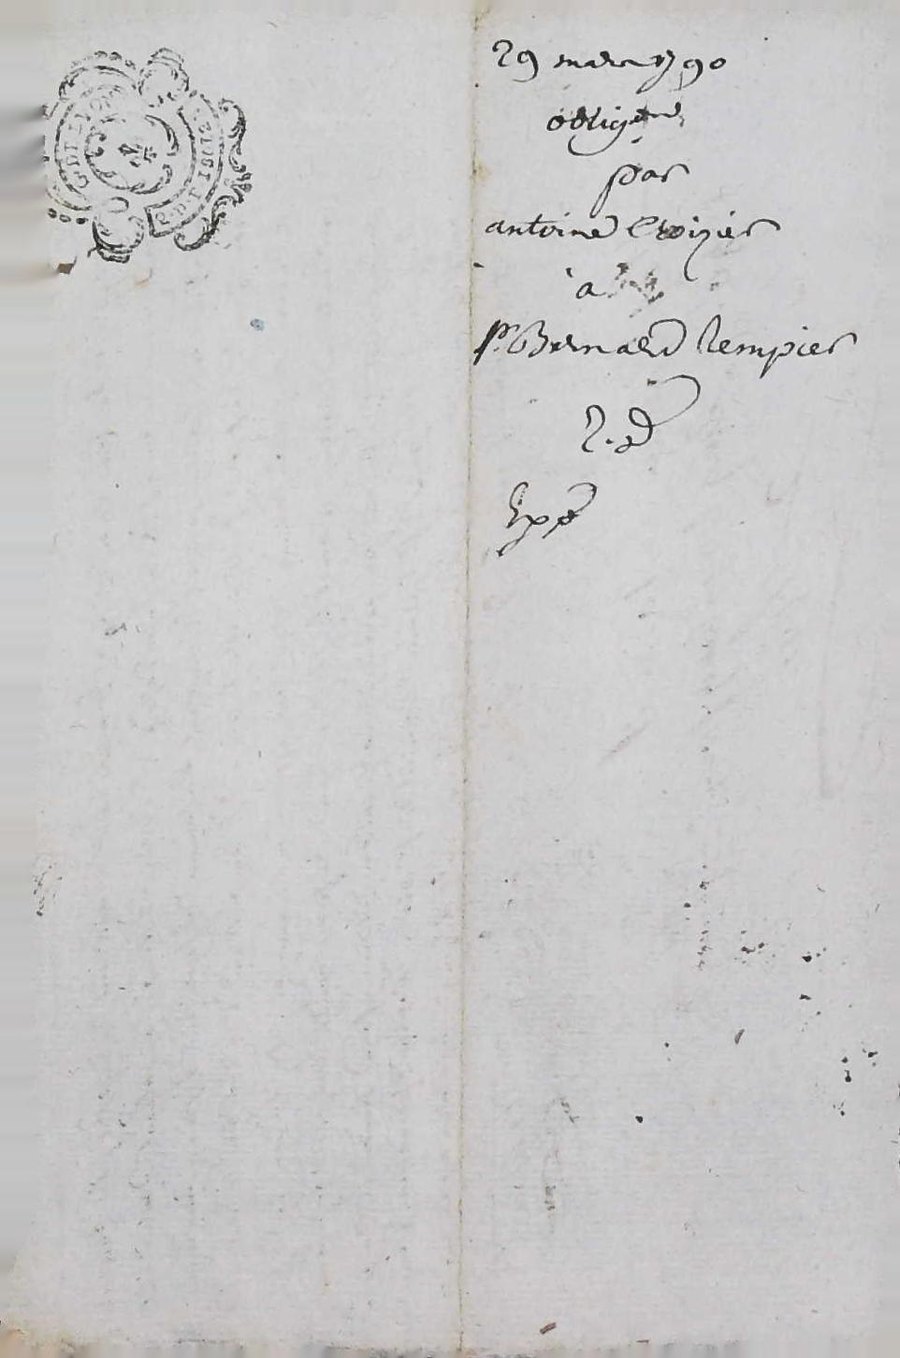 29 mars 1790
oblig^on
par
antoine Croizier
à
Bernard Rempier
Exp^e